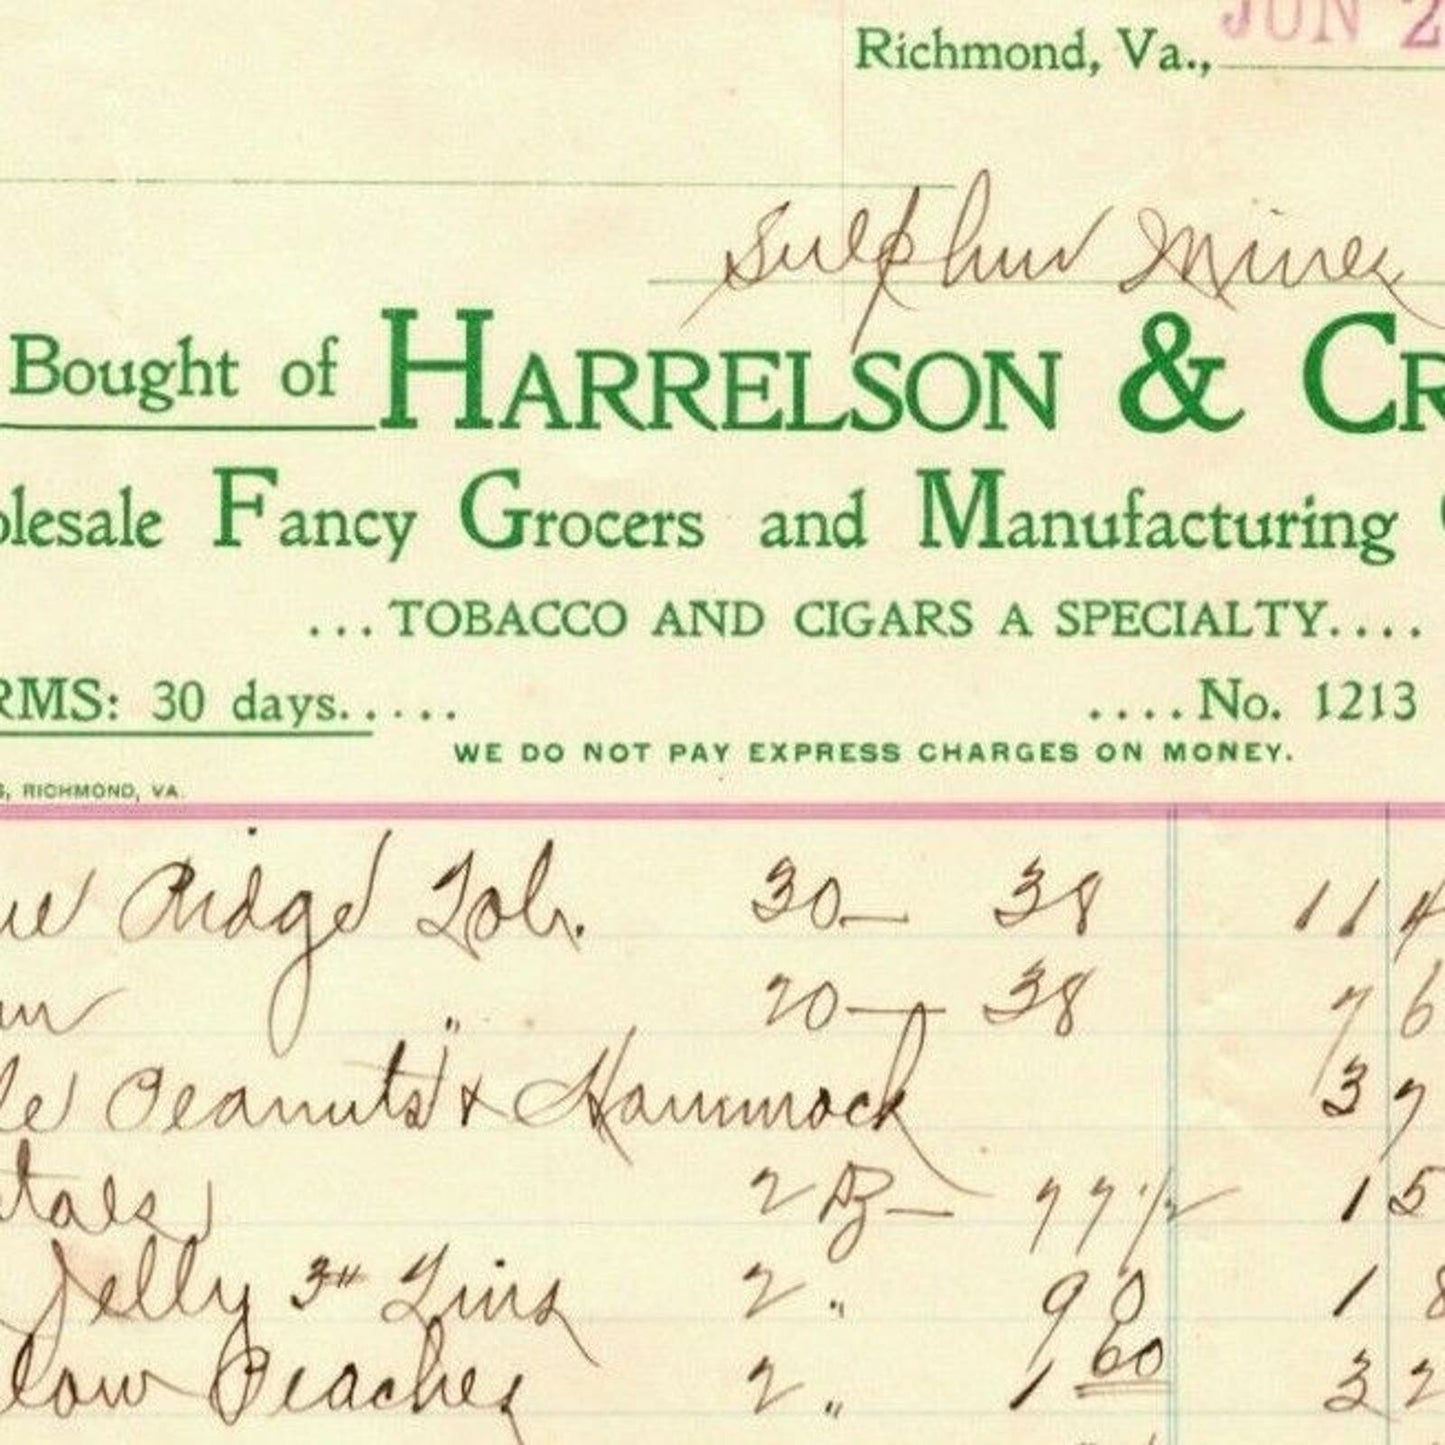 Richmond, Va., JUN 2
Sulphur Mines
Bought of HARRELSON & CR
olesale Fancy Grocers and Manufacturing
...TOBACCO AND CIGARS A SPECIALTY....
RMS: 30 days..... ....No. 1213
WE DO NOT PAY EXPRESS CHARGES ON MONEY.
S, RICHMOND, VA.
ue Ridge Tob. 30— 38 11 4
" 20— 38 7 6
le Peanuts & Hammock 3 7
2 Dz— 77 1/2 1 5
Jelly 3# Tins 2 " 90 1 8
low Peaches 2 " 1 60 3 2